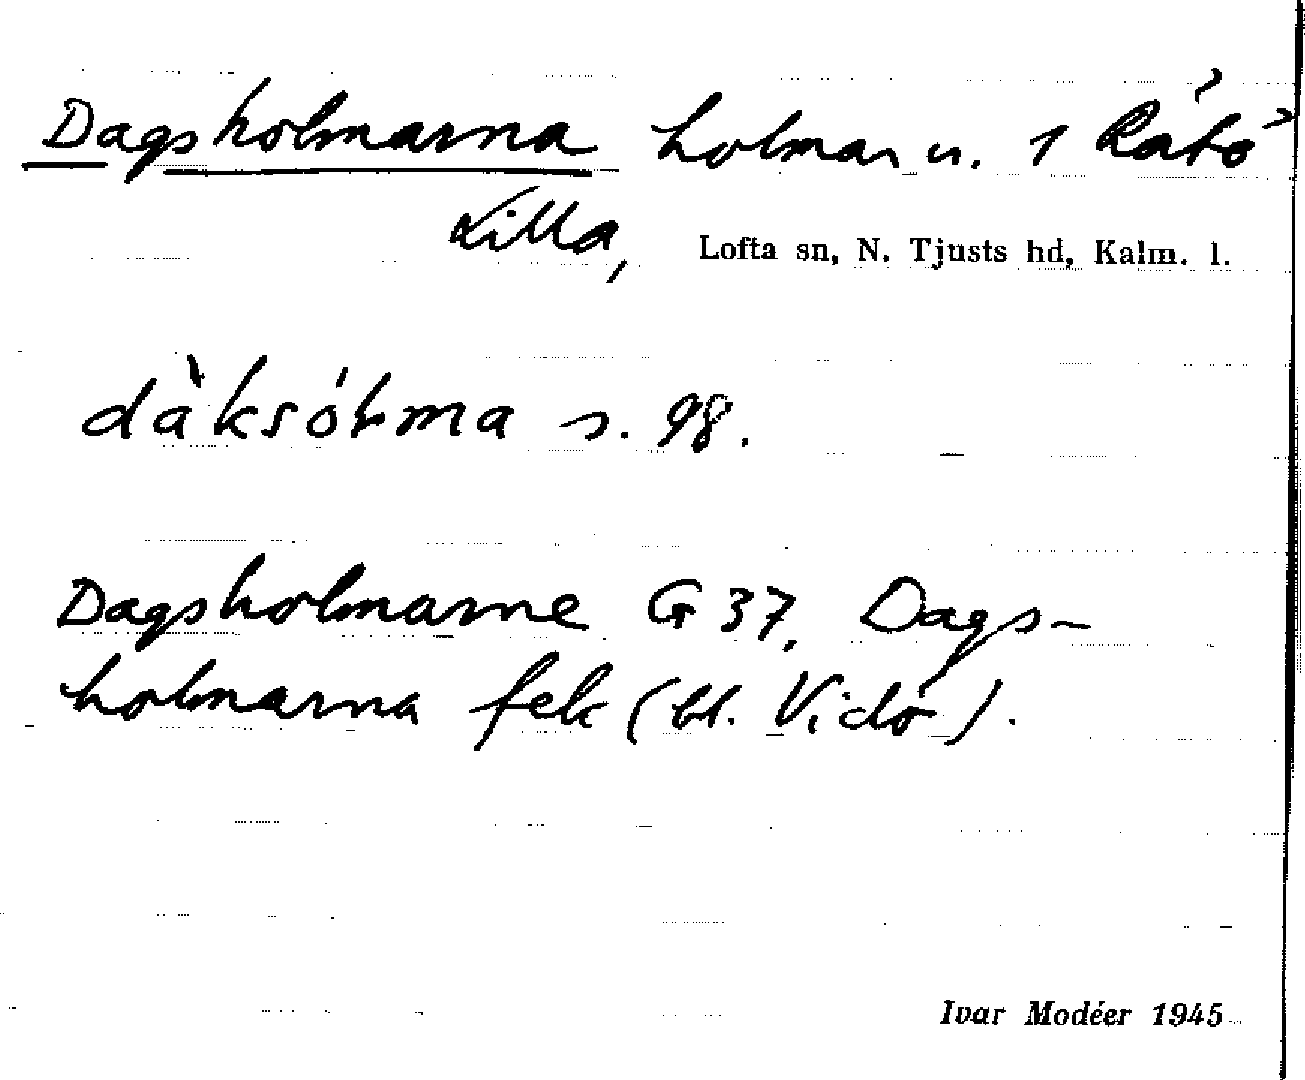 Dagsholmarna holmar u. 1 Råtö
Lilla,
Lofta sn, N. Tjusts hd, Kalm. l.
dàksóhma s. 98.
Dagsholmarne G 37, Dags-
holmarna fek (bl. Vidö).
Ivar Modéer 1945